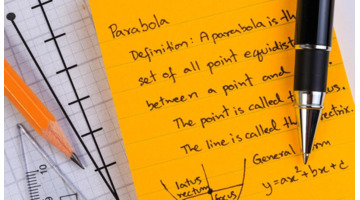 Parabola
Definition: A parabola is th
set of all point equidist
between a point and
The point is called us.
The line is called th rectrix.
General m
y=ax²+bx+c
latus
rectum
focus